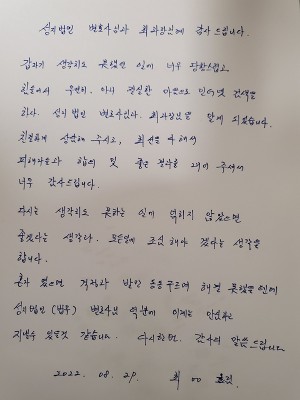 성지법인 변호사님과 최과장님께 감사 드립니다.
갑자기 생각지도 못했던 일이 너무 당황스럽고
친구에서 우연히. 아니 절실한 마음으로 인터넷 검색을
하다. 성지 법인 변호사님과. 최과장님을 알게 되었습니다.
친절하게 상담해 주시고, 최선을 다해서
피해자들과 합의 및 좋은 결과를 내어 주셔서
너무 감사드립니다.
다시는 생각지도 못하는 일에 엮이지 않았으면
좋겠다는 생각과. 모든일에 조심 해야 겠다는 생각을
합니다.
혼자 였으면 겁나고 발만 동동구르며 해결 못했을 일인데
성지법인(법무) 변호사님 덕분에 이제는 안심하고
지낼수 있을것 같습니다. 다시한번. 감사의 말씀 드립니다
2022. 08. 29. 최 00